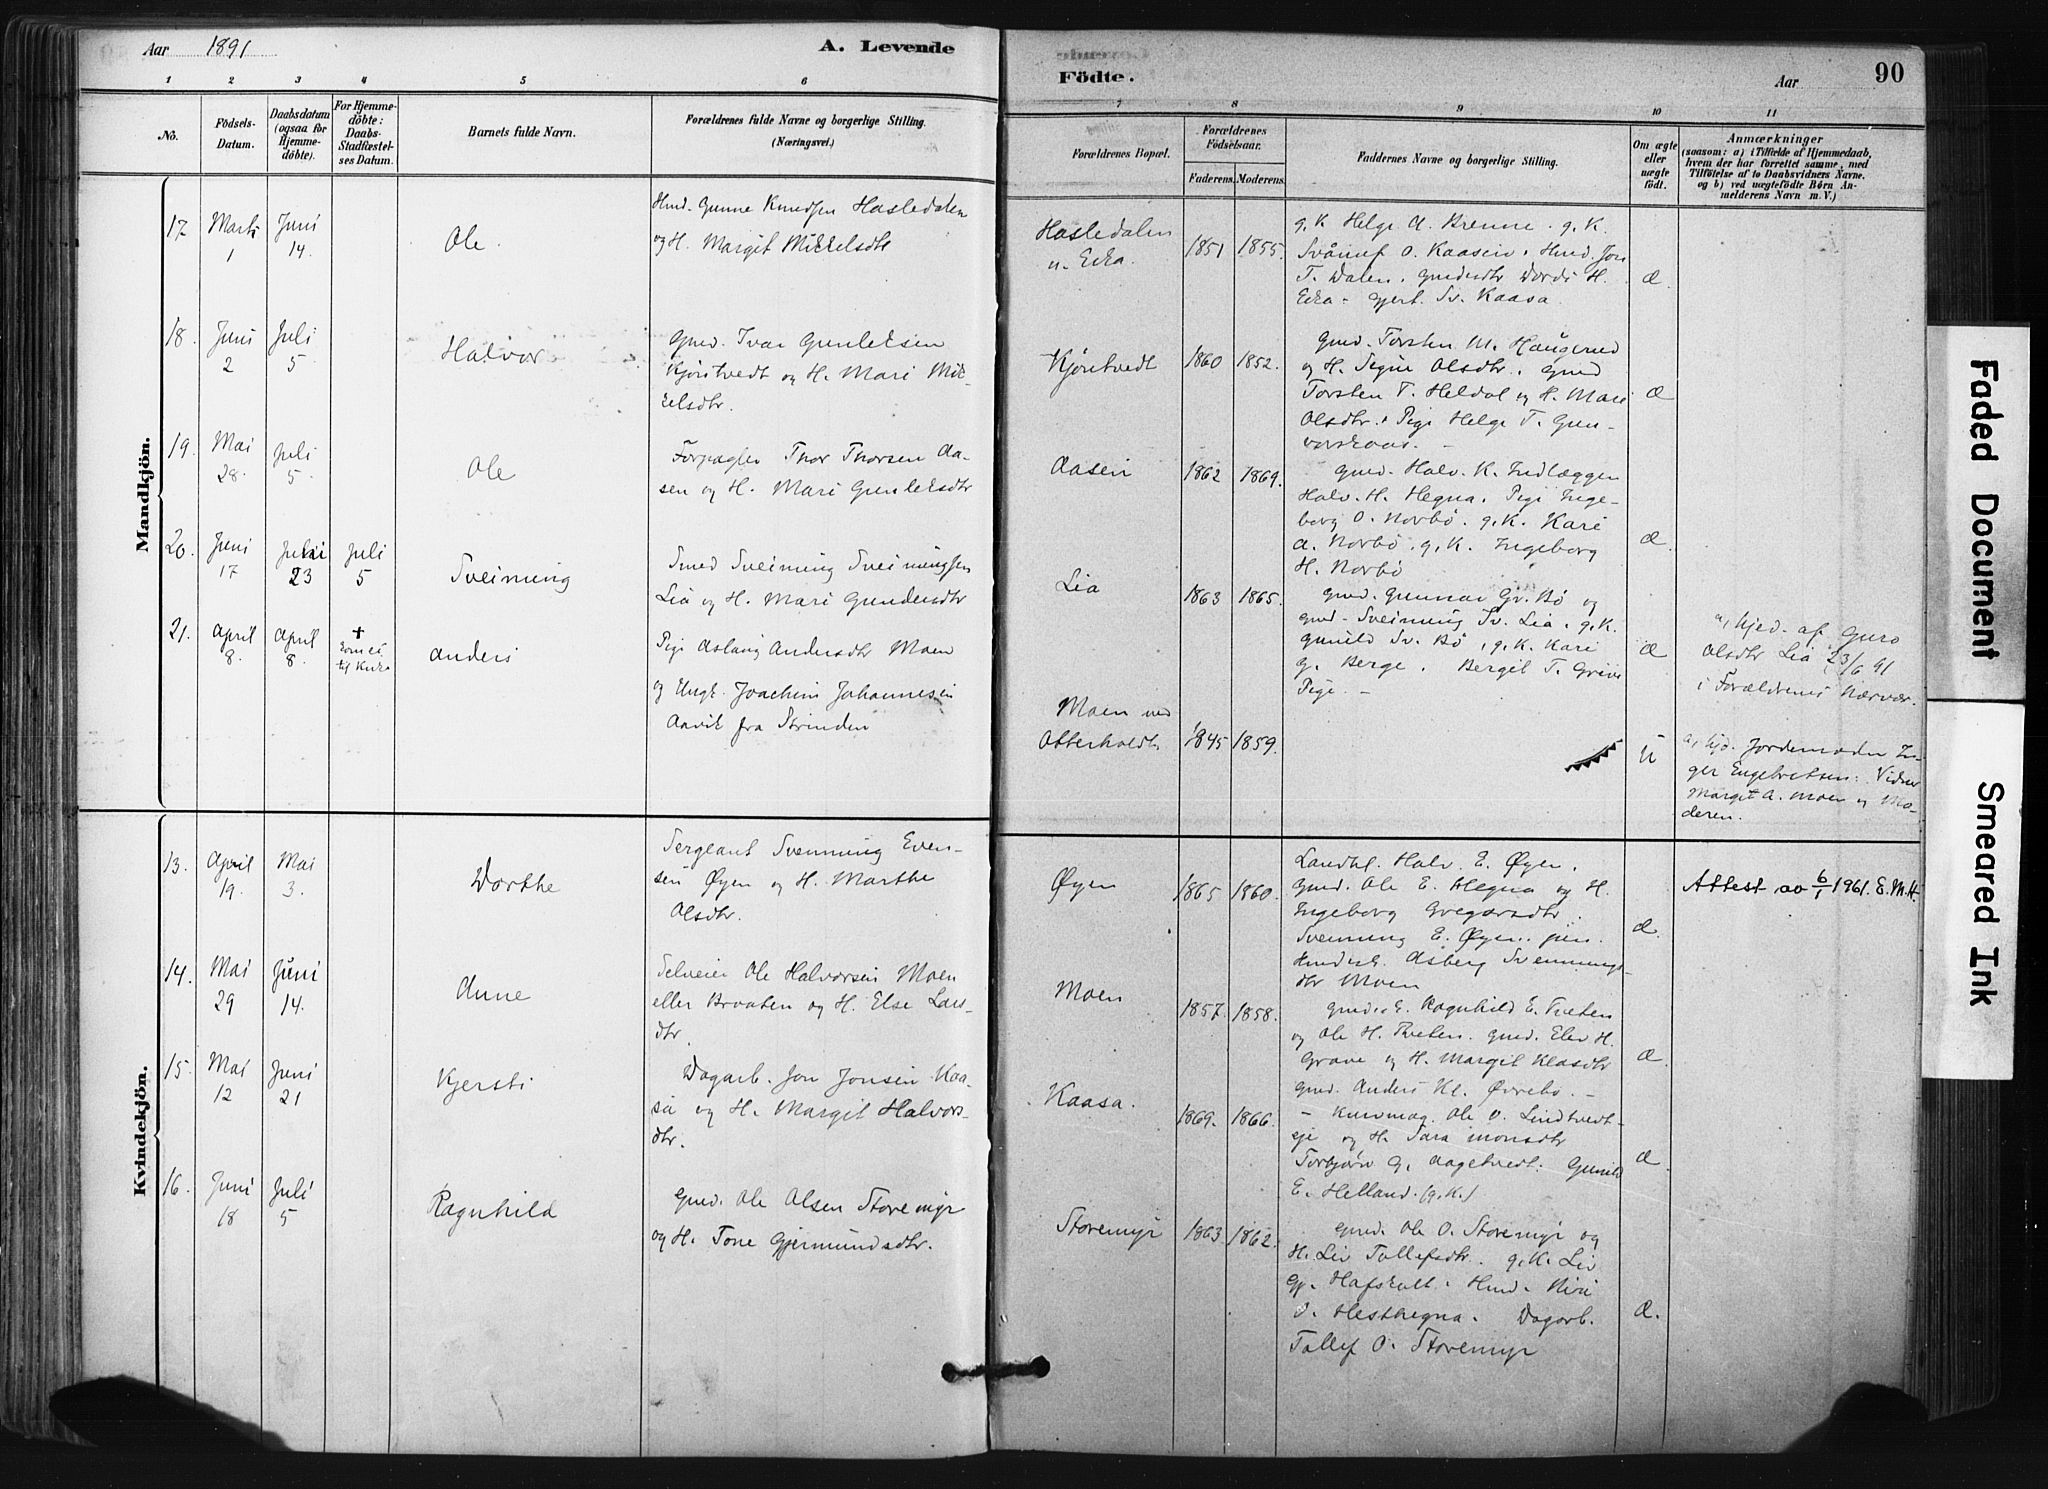 Aar 1891
A. Levende
1 2 3 4 5 6
No.
Födsels-
Datum.
Daabsdatum
(ogsaa for
Hjemme-
döbte).
For Hjemme-
döbte:
Daabs-
Stadfæstel-
ses Datum.
Barnets fulde Navn.
Forældrenes fulde Navne og borgerlige Stilling.
(Næringsvei.)
Mandkjön.
17
Marts
1
Juni
14.
Ole
Hmd. Gunne Knudsen Hasledalen
og H. Margit Mikkelsdtr
18.
Juni
2
Juli
5
Halvor
Gmd. Ivar Gunleksen
Kjöntvedt og H. Mari Mik-
kelsdtr.
19.
Mai
28.
Juli
5.
Ole
Forpagter Thor Thorsen Aa-
sen og H. Mari Gunleksdtr
20.
Juni
17
Juni
23
Juli
5
Sveinung
Smed Sveinung Sveinungsen
Lia og H. Mari Gundersdtr
21.
April
8.
April
8.
+
kom ei
til Kirke
Anders
Pige Aslaug Andersdtr Moen
og Ungk. Joachim Johannesen
Aavik fra Strinden
Kvindekjön.
13.
April
19.
Mai
3.
Dorthe
Sergeant Svenning Even-
sen Øyen og H. Marthe
Olsdtr.
14.
Mai
29
Juni
14.
Anne
Selveier Ole Halvorsen Moen
eller Braaten og H. Else Lars-
dtr.
15.
Mai
12
Juni
21
Kjersti
Dagarb. Jon Jonsen Kaa-
sa og H. Margit Halvors-
dtr.
16.
Juni
18
Juli
5
Ragnhild
Gmd. Ole Olsen Storemyr
og H. Tone Gjermundsdtr.
Födte.
Aar
90
7 8 9 10 11
Forældrenes Bopæl.
Forældrenes
Födselsaar.
Faderens. Moderens.
Faddernes Navne og borgerlige Stilling.
Om ægte
eller
uægte
födt.
Anmærkninger
(saasom: a) i Tilfælde af Hjemmedaab,
hvem der har forrettet samme, med
Tilföielse af to Daabsvidners Navne.
og b) ved uægtefödte Börn An-
melderens Navn m. V.)
Hasledalen
u. Eika.
1851 1855.
g. K Helge A. Brenne. g. K.
O. Kaasen. Hmd. Jon
T. Dalen. H.
Eika - Gjert. Sv. Kaasa.
Æ
Kjöntvedt
1860 1852.
Gmd. Torsten M. Haugerud
og H. Signe Olsdtr. Gmd
Torsten T. Heldal og H. Mari
Olsdtr. Pige Helge T. Gun-
Æ
Aasen
1862 1869.
Gmd. Halv. K. Indlæggen
Halv. H. Hegna. Pige Inge-
borg O. Norbö. g. K. Kari
A. Norbö. g. K. Ingeborg
H. Norbö
Æ
Lia
1863 1865.
Gmd. Gunnar Gr. Bö og
Gmd. Sveinung Sv. Lia. g. K.
Gunild Sv. Bö, g. K. Kari
G. Berge. Bergit T.
Pige. -
Æ
a, hjed. af Guro
Olsdtr Lia 23/6 91
i Forældrenes Nærvær.
Moen ved
Otterholdt
1845 1859.
U
a, hjd. Jordemoder In-
ger Engebretsen: Vidner
Margit A. Moen og Mo-
deren.
Øyen
1865 1860.
Landhl. Halv. E. Øyen.
Gmd. Ole E. Hegna og H.
Ingeborg Gregarsdtr.
Svenning E. Øyen. jun.
Asberg Svennings-
dtr Moen
Æ.
Attest av 6/1 1961. E.M.H.
Moen
1857. 1858.
Ragnhild E. Tveten
og Ole H. Tveten. Gmd. Elev H.
Grave og H. Margit Klasdtr
Gmd. Anders Kl. Øvrebö. -
Æ
Kaasa.
1869. 1866.
- Kurvmag. Ole O. Lindtvedt-
eje og H. Sara Monsdtr
Torbjørn G. Aagetvedt. Gunild
E. Helland. (g. K.)
Æ.
Storemyr
1863 1862.
Gmd. Ole O. Storemyr og
H. Liv Tollefsdtr. g. K. Liv
Gj. Hafskolt. Hmd. Niri
O. Hesthegna. Dagarb.
Tollef O. Storemyr
Æ.
Faded Document
Smeared Ink